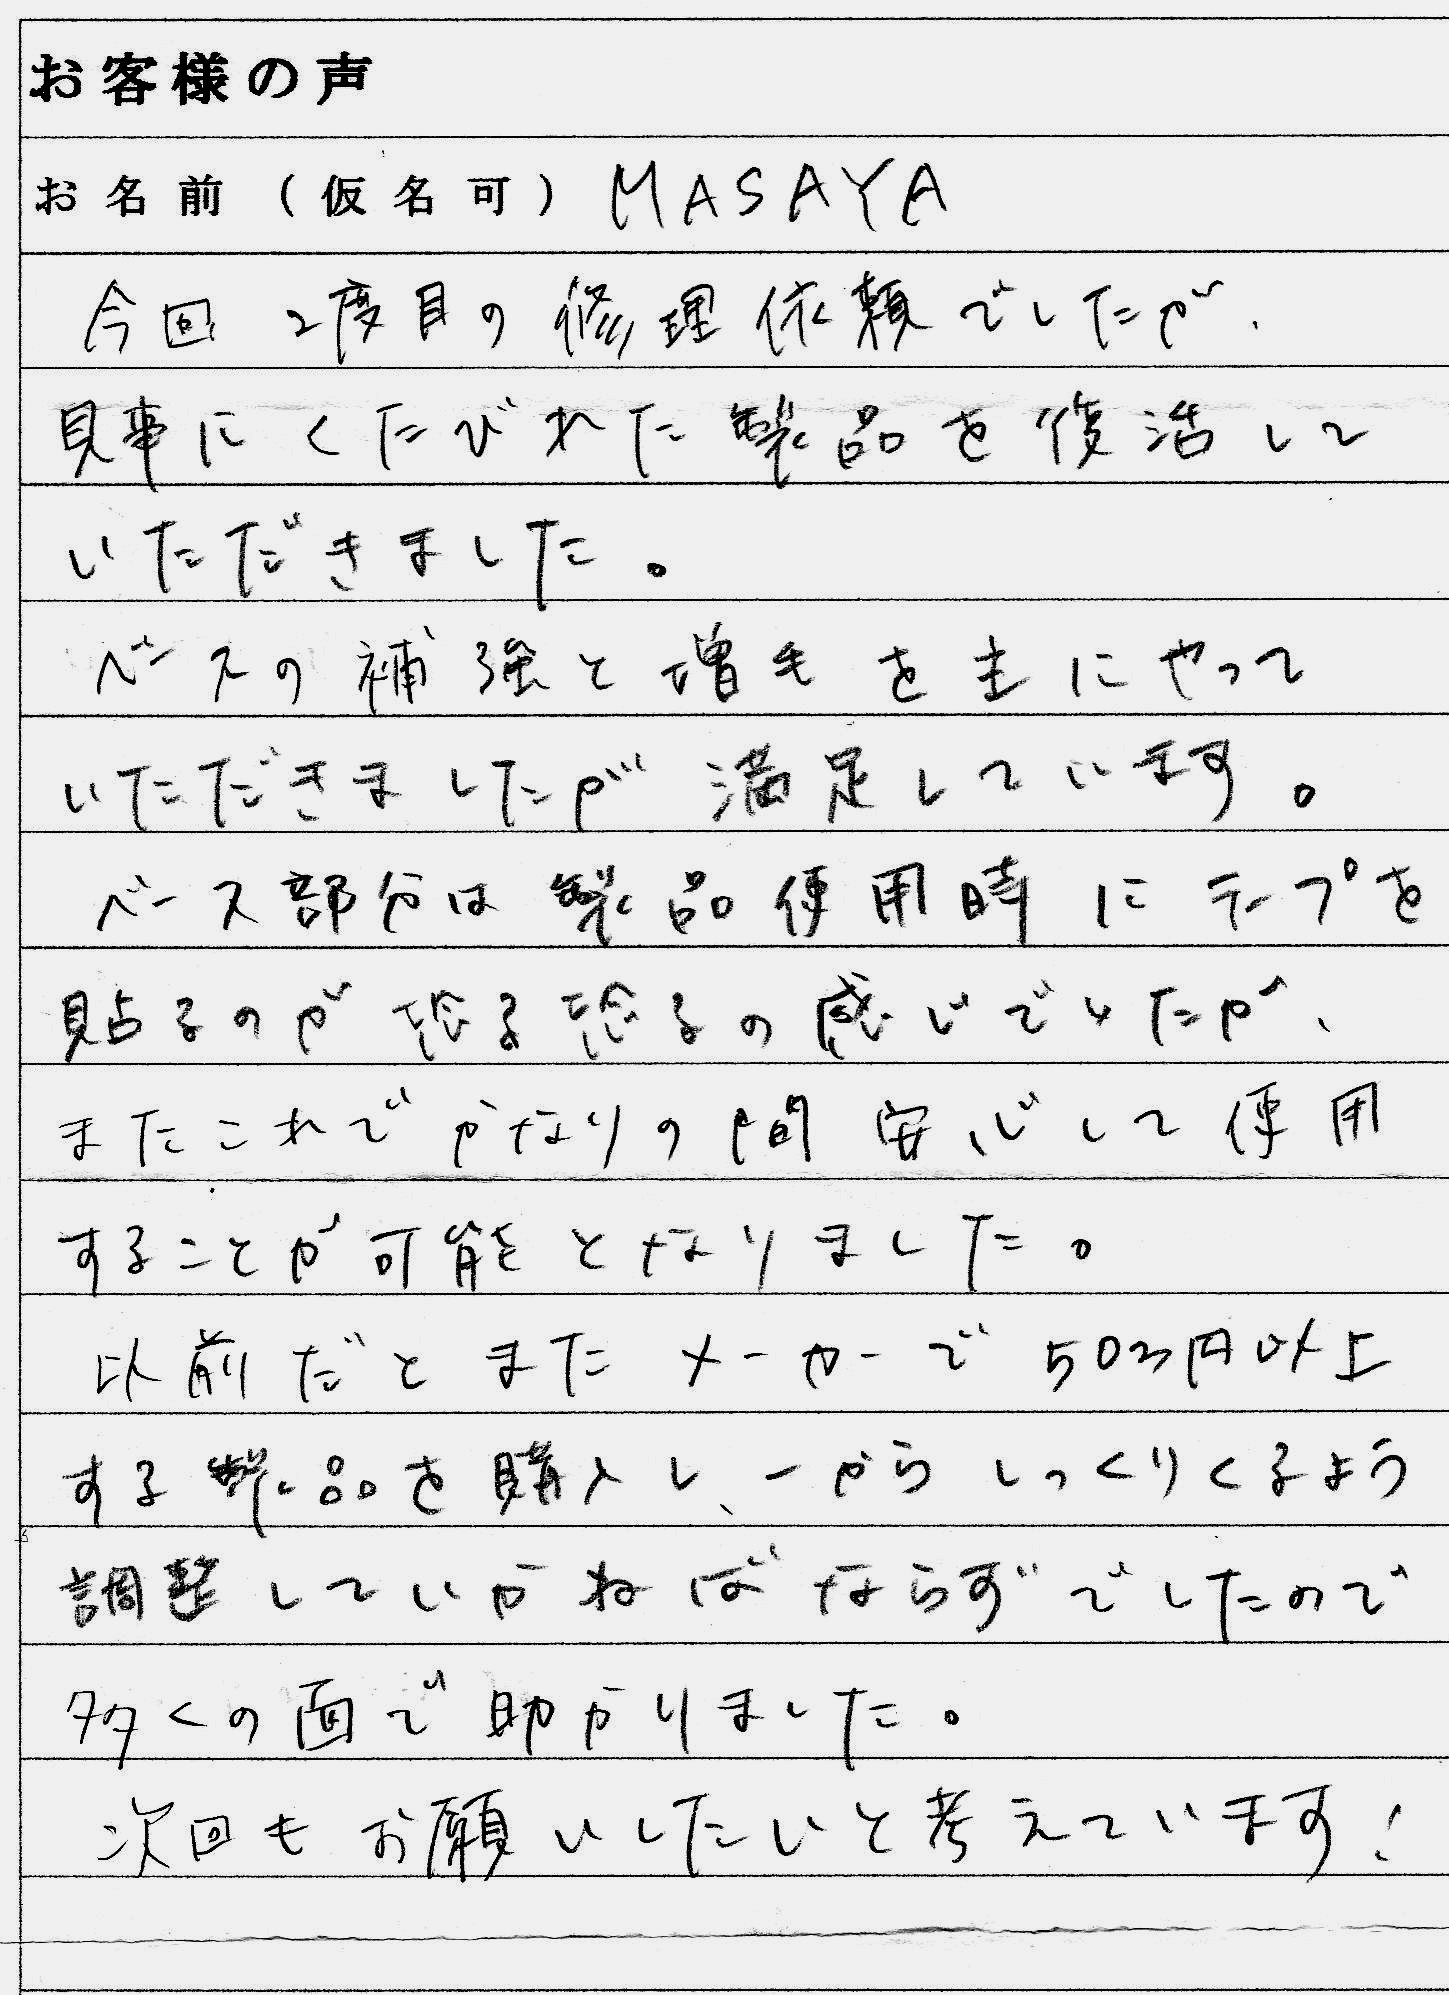 お客様の声
お名前（仮名可）MASAYA
今回2度目の修理依頼でしたが、
見事にくたびれた製品を復活して
いただきました。
ベースの補強と増毛を主にやって
いただきましたが満足しています。
ベース部分は製品使用時にテープを
貼るのが恐る恐るの感じでしたが、
またこれでかなりの間安心して使用
することが可能となりました。
以前だとまたメーカーで50万円以上
する製品を購入し、一からしっくりくるよう
調整していかねばならずでしたので
多くの面で助かりました。
次回もお願いしたいと考えています!